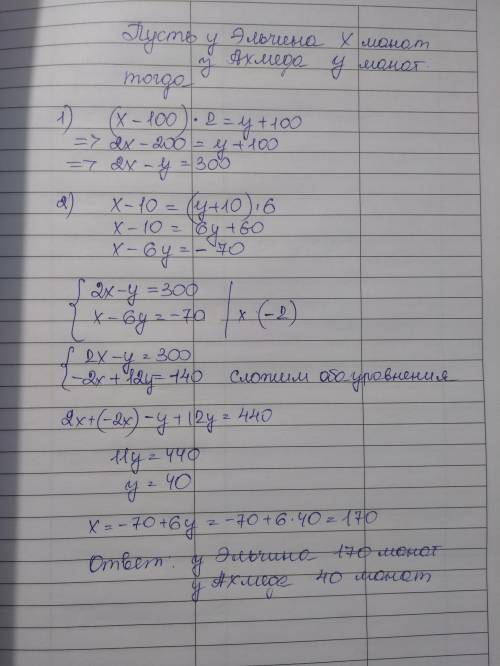 Пусть у Эльчина x манат
у Ахмеда y манат.
тогда
1) (x-100)·2=y+100
=> 2x-200=y+100
=> 2x-y=300
2) x-10=(y+10)·6
x-10=6y+60
x-6y=-70
2x-y=300
x-6y=-70 | x·(-2)
2x-y=300
-2x+12y=140 сложим оба уравнения
2x+(-2x)-y+12y=440
11y=440
y=40
x=-70+6y=-70+6·40=170
Ответ: у Эльчина 170 манат
у Ахмеда 40 манат